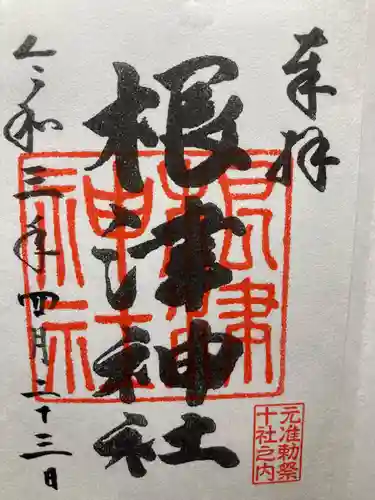 奉拝
根津神社
根津神社
令和三年四月二十三日
元准勅祭
十社之内